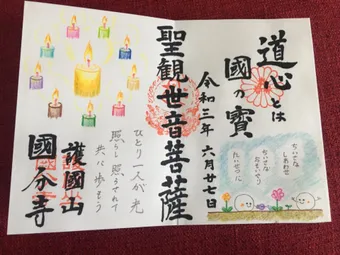 道心とは
國の寳
ちいさな
しあわせ
ちいさな
おもいやり
たいせつに
令和三年六月廿七日
聖観世音菩薩
ひとり一人が光
照らし照らされて
共に歩もう
護國山
國分寺